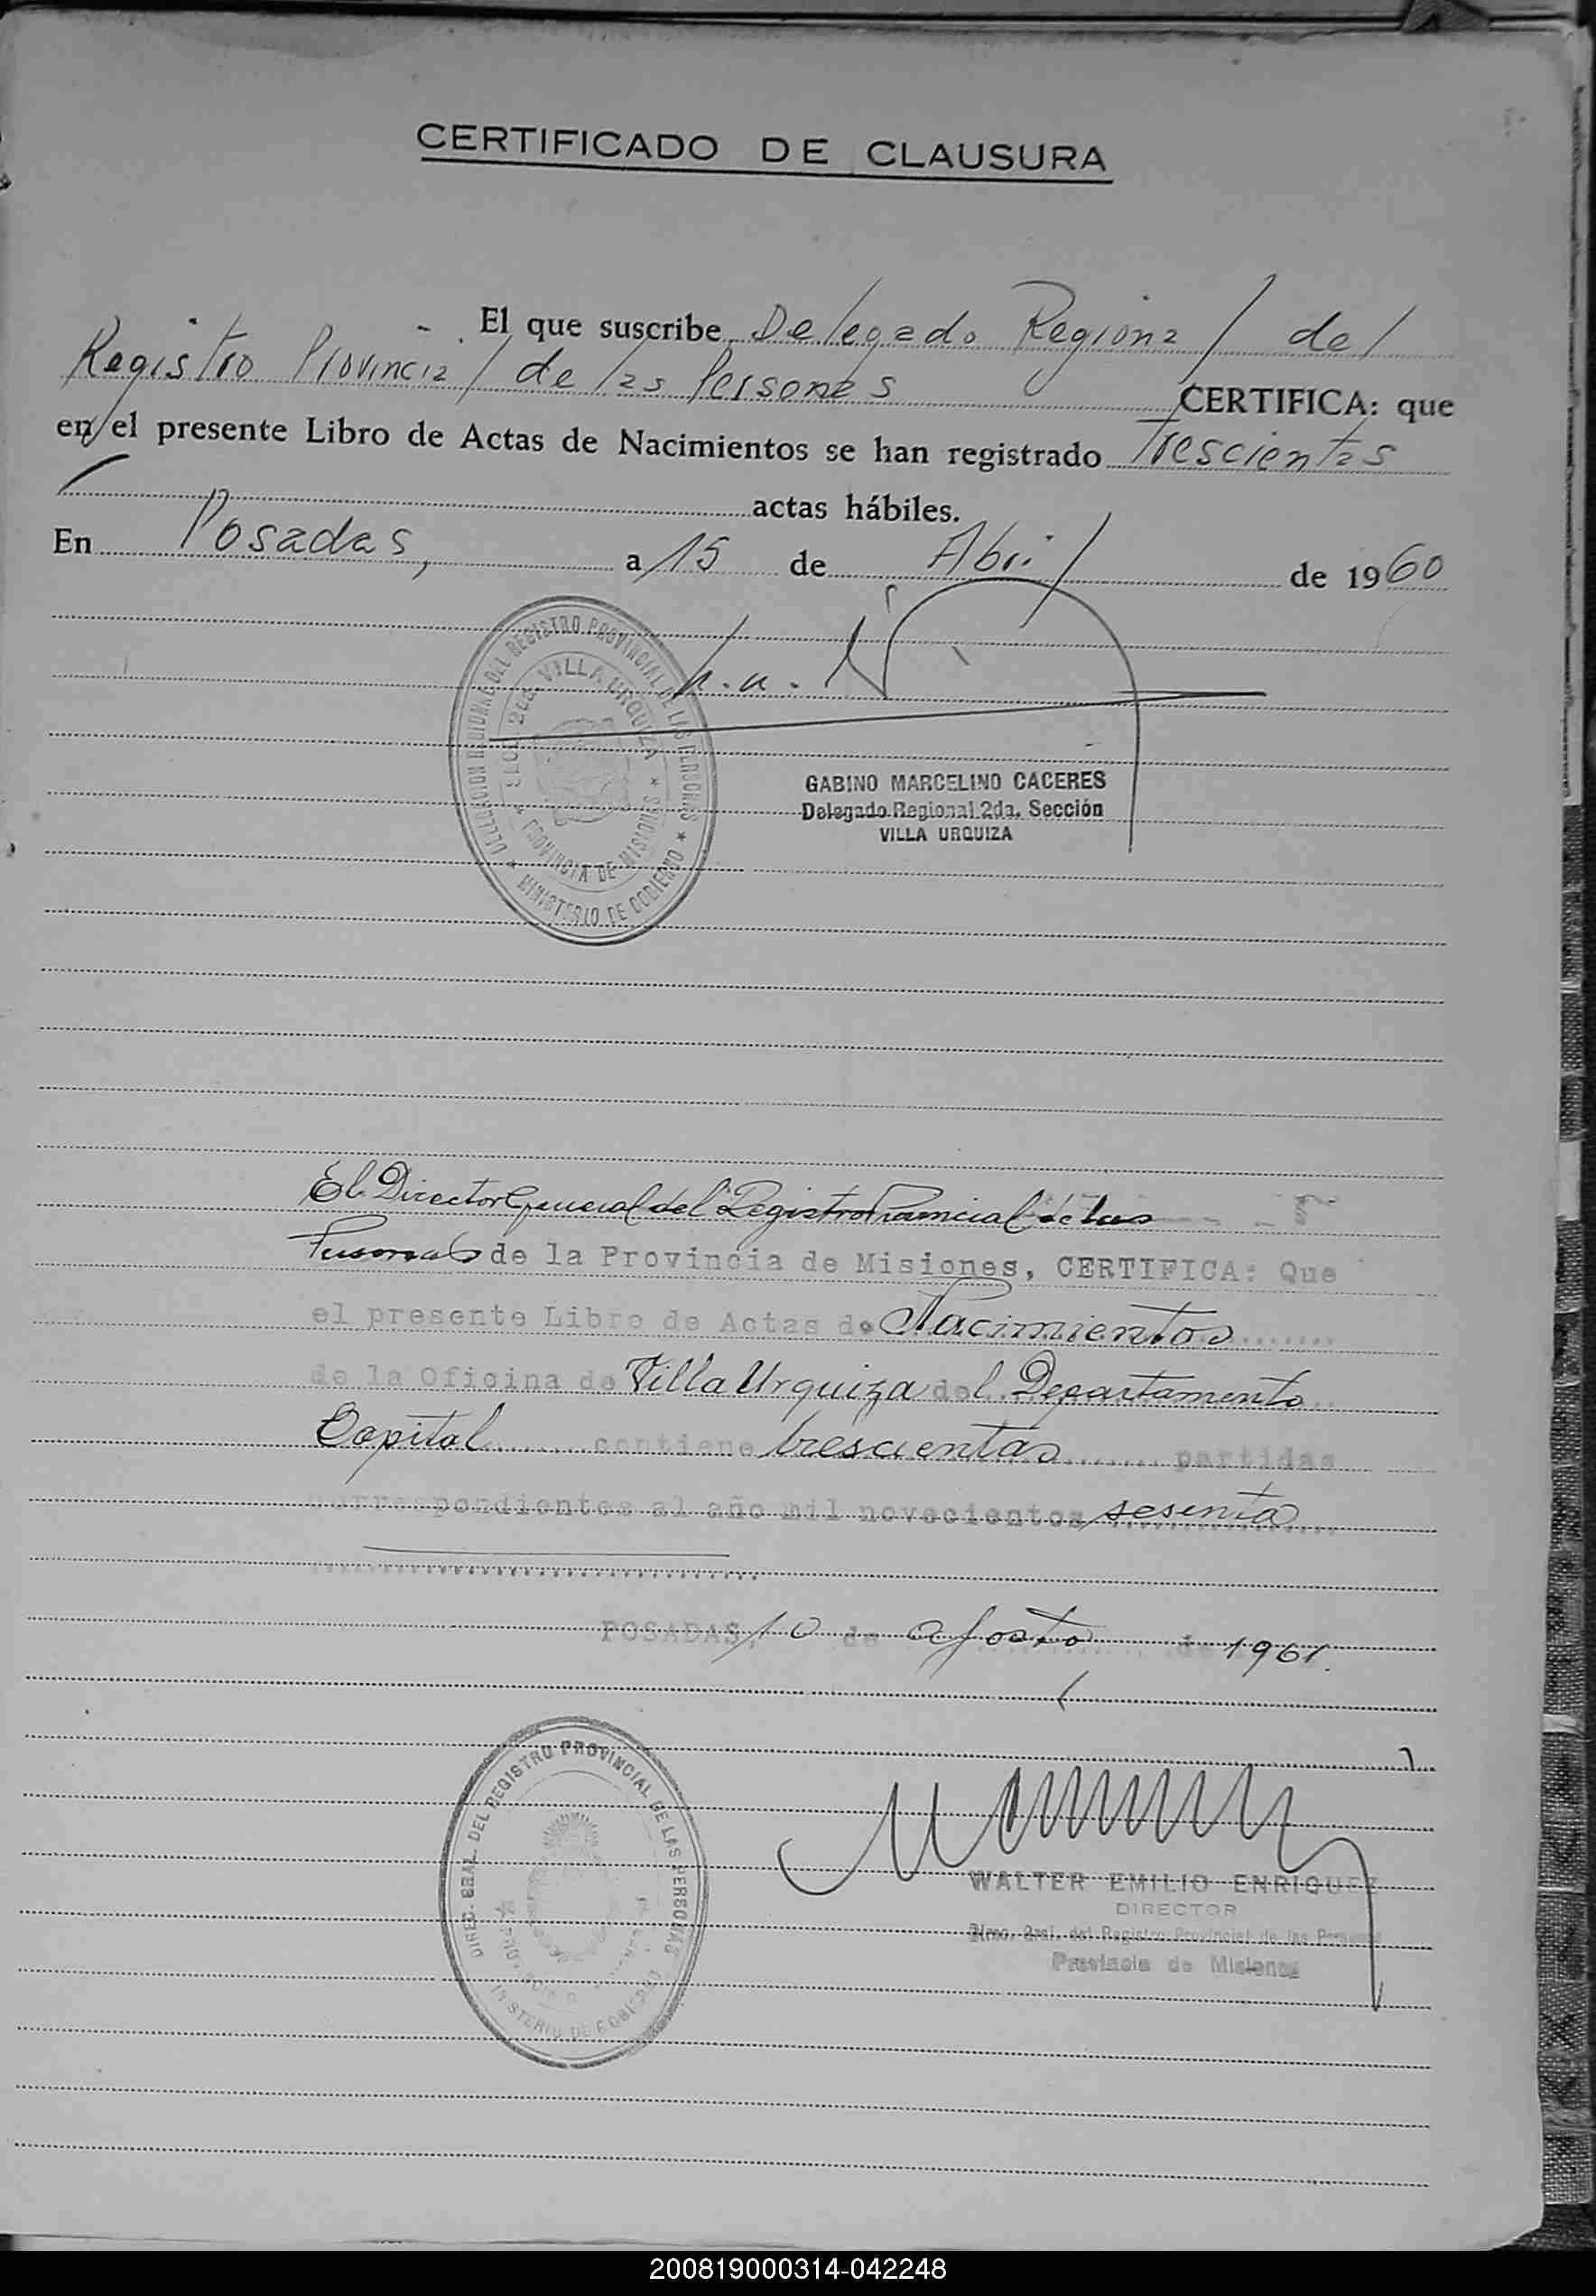 CERTIFICADO DE CLAUSURA
El que suscribe Delegado Regional del
Registro Provincial de las Personas CERTIFICA: que
en el presente Libro de Actas de Nacimientos se han registrado Trescientas
actas hábiles.
En Posadas, a 15 de Abril de 1960
DELEGACION REGIONAL DEL REGISTRO PROVINCIAL DE LAS PERSONAS
VILLA URQUIZA
PROVINCIA DE MISIONES
MINISTERIO DE GOBIERNO
GABINO MARCELINO CACERES
Delegado Regional 2da. Sección
VILLA URQUIZA
El Director General del Registro Provincial de las
Personas de la Provincia de Misiones, CERTIFICA: Que
el presente Libro de Actas de Nacimientos
de la Oficina de Villa Urquiza del Departamento
Capital contiene trescientas partidas
correspondientes al año mil novecientos sesenta
POSADAS, 10 de agosto de 1961.
DIREC. GRAL. DEL REGISTRO PROVINCIAL DE LAS PERSONAS
MINISTERIO DE GOBIERNO
WALTER EMILIO ENRIQUEZ
DIRECTOR
Direc. Gral. del Registro Provincial de las Personas
Provincia de Misiones
200819000314-042248